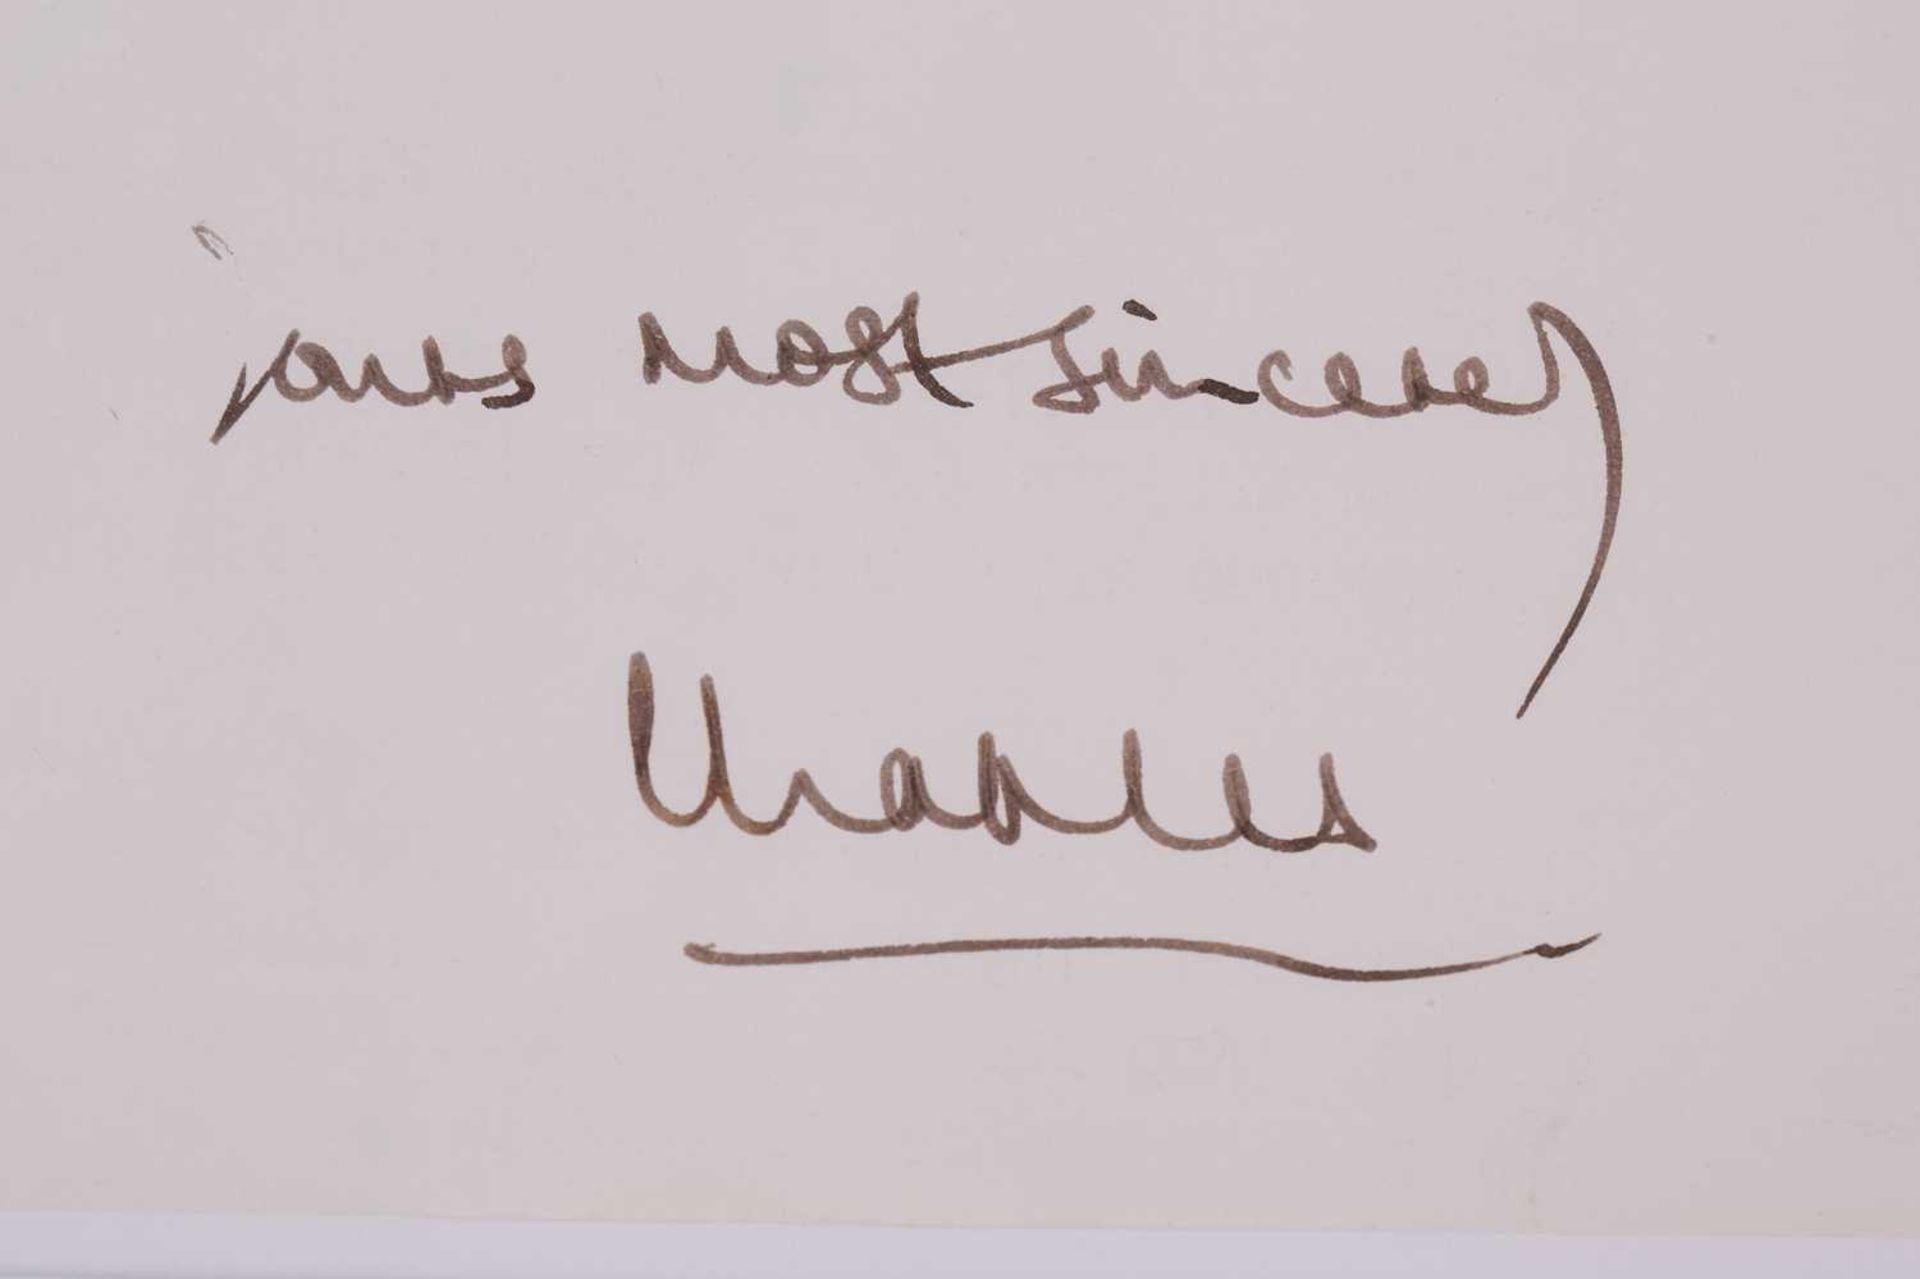 yours most sincerely
Charles